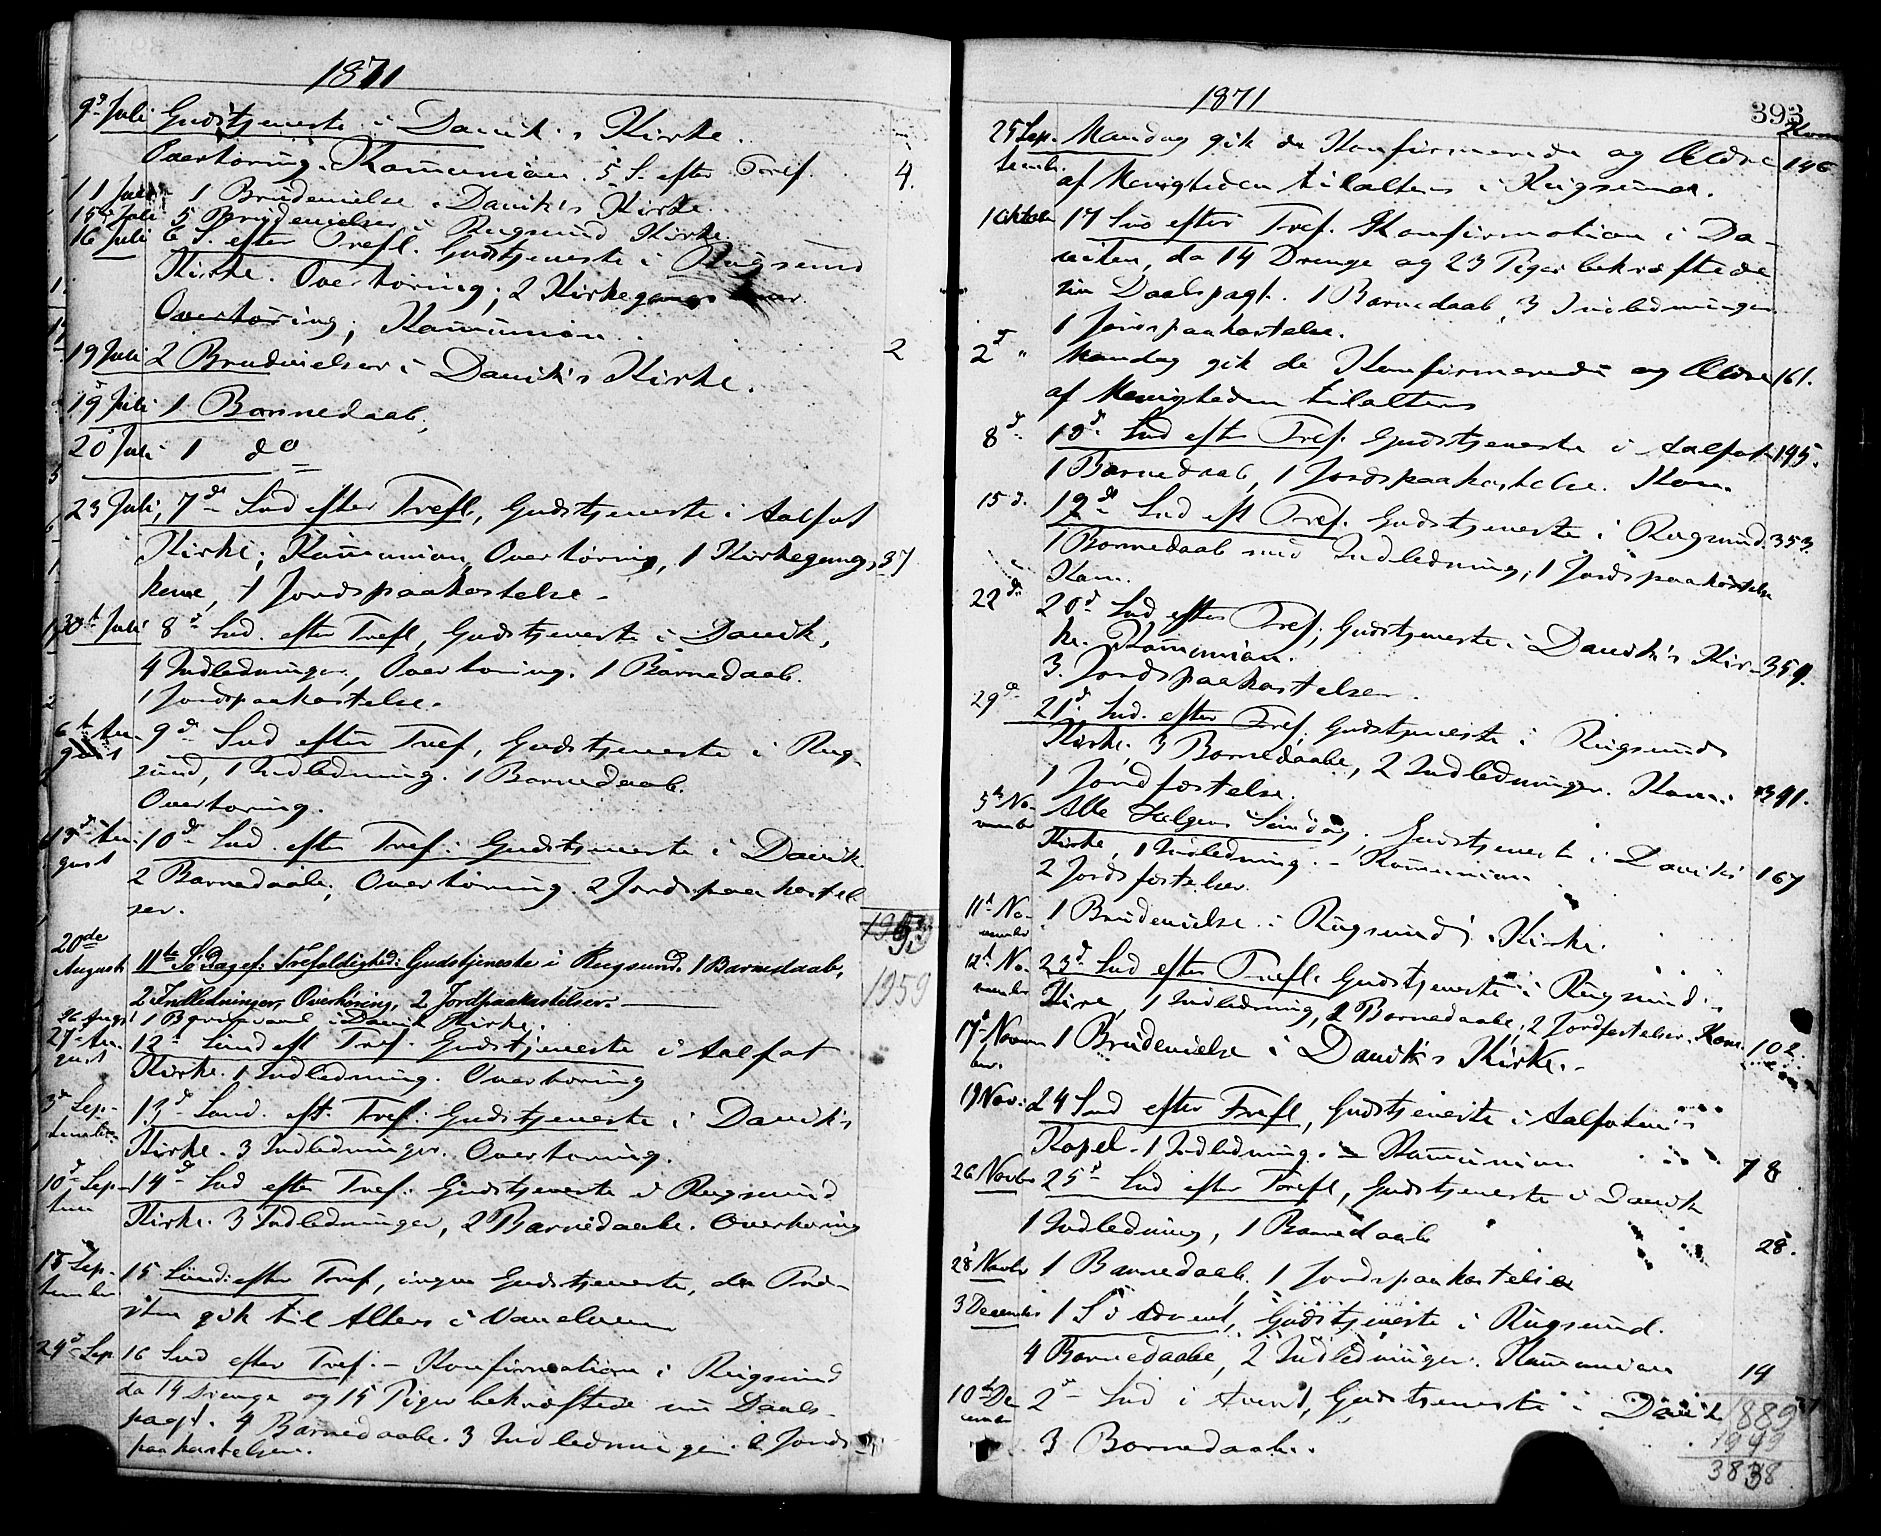 1871
9d Juli Gudstjeneste i Davik's Kirke.
Overhøring. Kommunion. 5 S. efter Tref. 4.
11 Juli 1 Brudevielse i Davik's Kirke
15d Juli 5 Brudevielser i Rugsund Kirke
16 Juli 6 S. efter Trefl. Gudstjeneste i Rugsund
Kirke. Overhøring; 2 Kirkegangs
Overhøring; Kommunion. 2
19 Juli 2 Brudevielser i Davik's Kirke.
19d Juli 1 Barnedaab,
20 Juli 1 do
23 Juli, 7d Snd efter Trefl, Gudstjeneste i Aalfot
Kirke; Kommunion, Overhøring, 1 Kirkegangs 37
kone, 1 Jordspaakastelse -
30t Juli 8d Snd. efter Trefl, Gudstjeneste i Davik,
4 Indledninger, Overhøring. 1 Barnedaab.
1 Jordspaakastelse.
6t Au- 9d Snd efter Tref, Gudstjeneste i Rug-
gust sund, 1 Indledning. 1 Barnedaab.
Overhøring.
13d Au- 10d Snd. efter Tref. Gudstjeneste i Davik
gust 2 Barnedaab; Overhøring. 2 Jordspaakastel-
ser.
20de
August 11te Sødag ef: Trefoldighed: Gudstjeneste i Rugsund. 1 Barnedaab, 1959
2 Indledninger, Overhøring, 2 Jordpaakastelser.
26 Augs 1 Barnedaab i Davik Kirke.
27d Au- 12d Sund eft Tref. Gudstjeneste i Aalfot
gust Kirke. 1 Indledning. Overhøring
3d Sep- 13d Sund. eft. Tref. Gudstjeneste i Davik's
tember Kirke. 3 Indledninger. Overhøring.
10d Sep- 14d Snd efter Tref. Gudstjeneste i Rugsund
tem Kirke. 3 Indledninger, 2 Barnedaab. Overhøring
Sep- 15 Sund: efter Tref, ingen Gudstjeneste, da Præ-
tember sten gik til Alters i Vanelven
24d Sep. 16 Snd efter Tref. - Konfirmation i Rugsund
da 14 Drenge og 15 Piger bekræftede sin Daabs-
pagt. 4 Barnedaab. 3 Indledninger. 2 Jords-
paakastelser.
1871
393
Kom
25 Sep- Mandag gik de Konfirmerede og Ældre 146
tembr. af Menigheden til alters i Rugsund.
1 Oktober 17 Snd efter Tref. Konfirmation i Da-
viken, da 14 Drenge og 23 Piger bekræftede
sin Daabspagt. 1 Barnedaab, 3 Indledninger
1 Jordspaakastelse.
2d " Mandag gik de Konfirmerede og Ældre 161.
af Menigheden til alters
8d 18d Snd efter Tref. Gudstjeneste i Aalfot 195.
1 Barnedaab, 1 Jordspaakastelse. Kom.
15 d. 19d Snd eft Tref. Gudstjeneste i Rugsund. 353.
1 Barnedaab med Indledning; 1 Jordspaakastelse
Kom.
22d 20d Snd efter Tref; Gudstjeneste i Davik's Kir- 359.
ke. Kommunion.
3. Jordspaakastelser.
29d 21d. Snd. efter Tref; Gudstjeneste i Rugsunds
Kirke. 3 Barnedaabe, 2 Indledninger. Kom.
1 Jordfæstelse.
5t No- Alle Helgens Søndag; Gudstjeneste i Daviks
vember Kirke, 1 Indledning. - Kommunion 167
2 Jordsfæstelser.
11t No- 1 Brudevielse i Rugsund's Kirke.
vember
12t No- 23d Snd efter Trefl. Gudstjeneste i Rugsund's
vember Kirke, 1 Indledning, 2 Barnedaabe, 2 Jordfæstelser. Kom. 102.
17d Novem- 1 Brudevielse i Davik's Kirke.
ber.
19 Nov: 24 Snd efter Trefl, Gudstjeneste i Aalfoten's
Kapel. 1 Indledning. - Kommunion 78
26 Novbr 25d Snd efter Trefl, Gudstjeneste i Davik
1 Indledning, 1 Barnedaab 28.
28d Novbr 1 Barnedaab, 1 Jordspaakastelse
3 December 1 S i Advent, Gudstjeneste i Rugsund.
4 Barnedaabe, 2 Indledninger. Kommunion 14
10de De- 2d Snd i Avent, Gudstjeneste i Davik
cember 3 Barnedaab.
1889
1949
3838